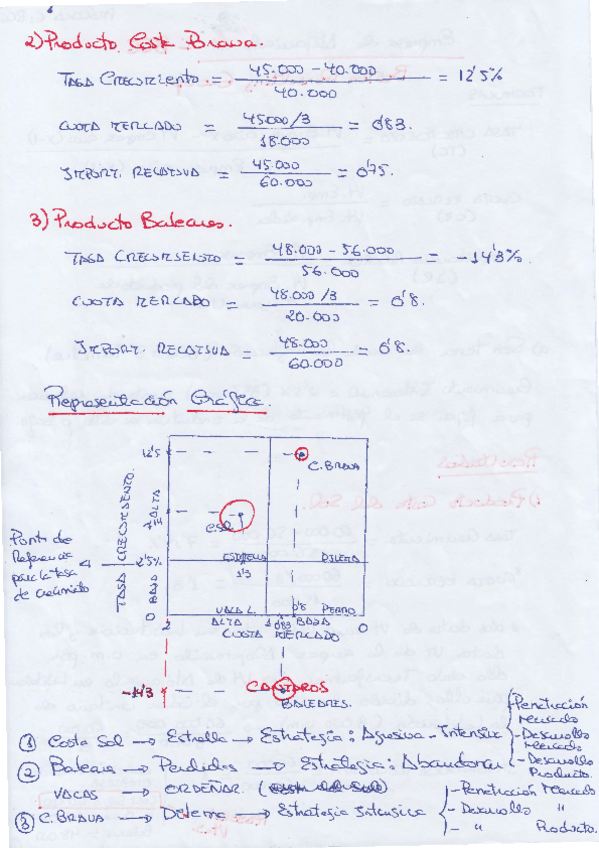 2) Producto Costa Brava.
TASA CRECIMIENTO = 45.000 - 40.000 / 40.000 = 12'5%
CUOTA MERCADO = 45000/3 / 18.000 = 0'83.
IMPORT. RELATIVA = 45.000 / 60.000 = 0'75.
3) Producto Baleares.
TASA CRECIMIENTO = 48.000 - 56.000 / 56.000 = -14'3%.
CUOTA MERCADO = 48.000/3 / 20.000 = 0'8.
IMPORT. RELATIVA = 48.000 / 60.000 = 0'8.
Representación Gráfica.
12'5
C. BRAVA
TASA CRECIMIENTO.
ALTA
CSOL
Punto de
Referencia
para la tasa
de crecimiento
2'5%
ESTRELLA
DILEMA
1'3
BAJO
0'8
VACA L.
PERRO
0
2
ALTA
0'83
BAJA
0
CUOTA MERCADO
-14'3
CANTAROS
BALEARES.
① Costa Sol → Estrella → Estrategia: Agresiva - Intensiva
Penetración
Mercado
- Desarrollo
Mercado
- Desarrollo
Producto.
② Baleares → Perdidas → Estrategia: Abandonar
VACAS → ORDEÑAR.
③ C. BRAVA → Dilema → Estrategia Intensiva
- Penetración Mercado
- Desarrollo "
- " Producto.